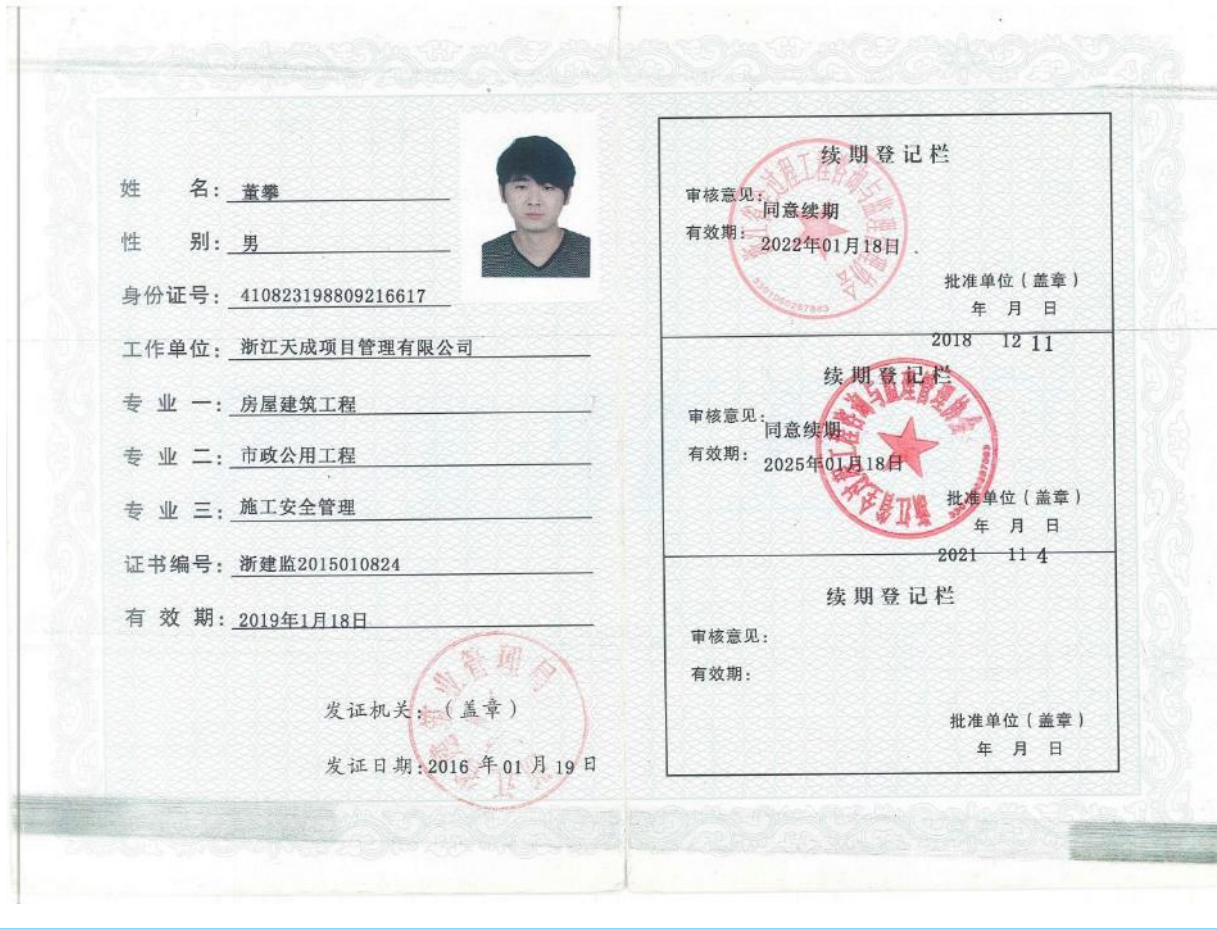 姓 名：董攀
性 别：男
身份证号：410823198809216617
工作单位：浙江天成项目管理有限公司
专 业 一：房屋建筑工程
专 业 二：市政公用工程
专 业 三：施工安全管理
证书编号：浙建监2015010824
有 效 期：2019年1月18日
发证机关：（盖章）
发证日期：2016 年 01 月 19 日
续期登记栏
审核意见：
同意续期
有效期：
2022年01月18日
批准单位（盖章）
年 月 日
2018 12 11
浙江省全过程工程咨询与监理管理协会
续期登记栏
审核意见：
同意续期
有效期：
2025年01月18日
批准单位（盖章）
年 月 日
2021 11 4
浙江省全过程工程咨询与监理管理协会
续期登记栏
审核意见：
有效期：
批准单位（盖章）
年 月 日